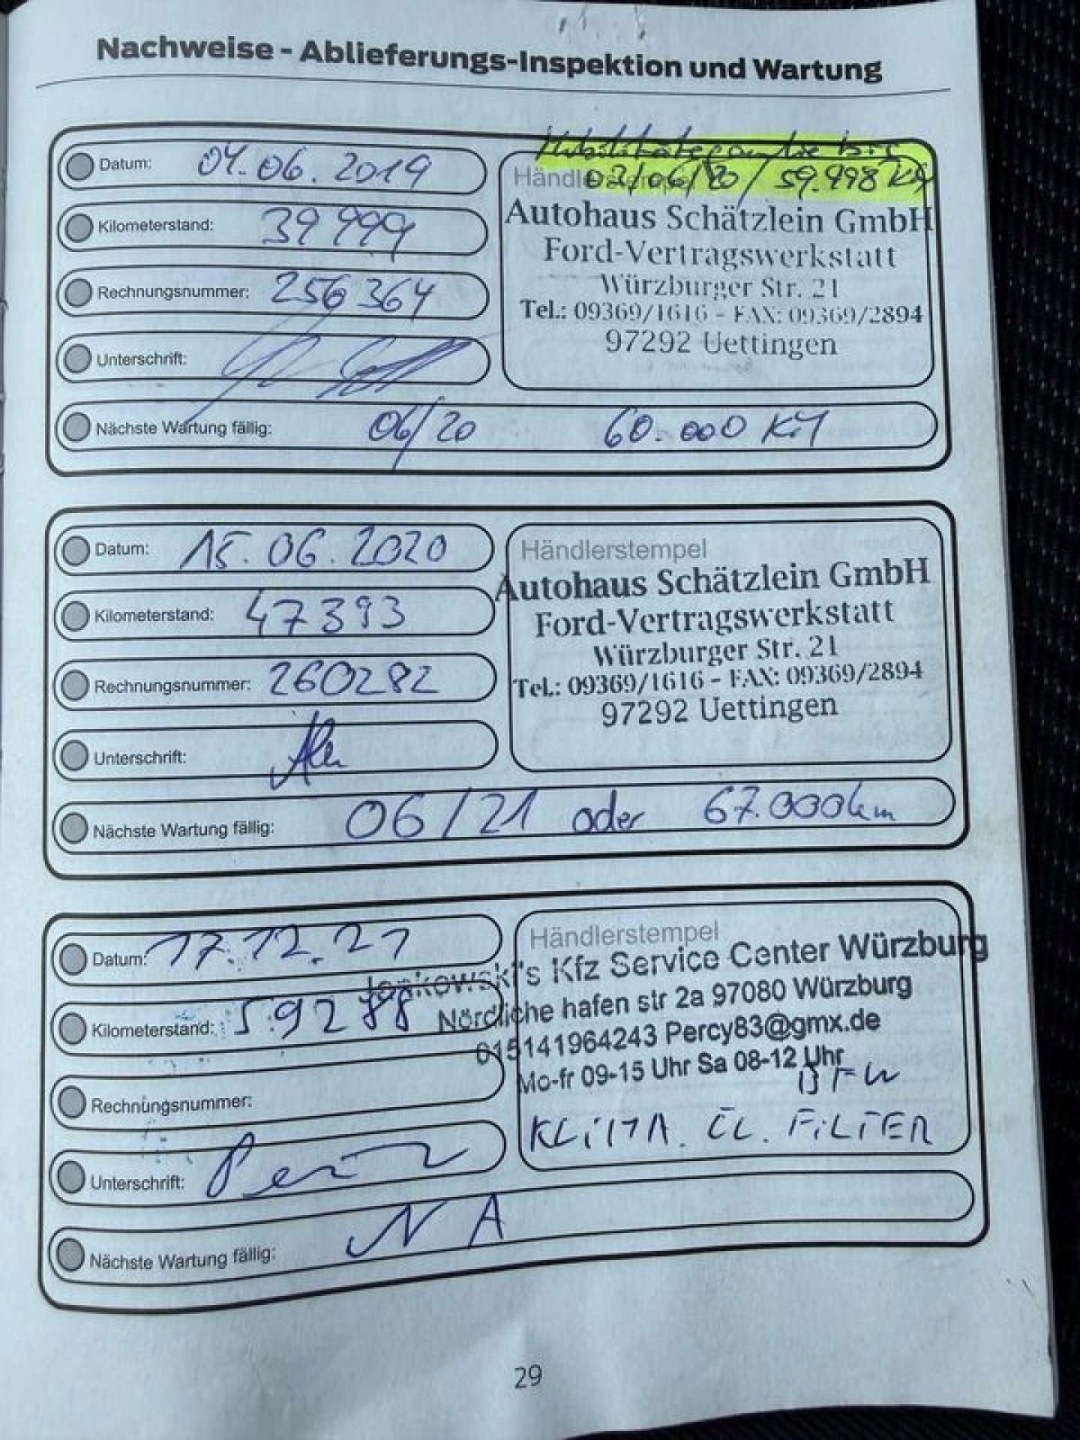 Nachweise - Ablieferungs-Inspektion und Wartung
Mobilitätsgarantie bis
03/06/20 / 59.998 KM
Datum: 04.06.2019
Kilometerstand: 39 999
Rechnungsnummer: 256 364
Unterschrift:
Autohaus Schätzlein GmbH
Ford-Vertragswerkstatt
Würzburger Str. 21
Tel.: 09369/1616 - FAX: 09369/2894
97292 Uettingen
Nächste Wartung fällig: 06/20 60.000 KM
Datum: 15.06.2020
Kilometerstand: 47393
Rechnungsnummer: 260282
Unterschrift:
Händlerstempel
Autohaus Schätzlein GmbH
Ford-Vertragswerkstatt
Würzburger Str. 21
Tel.: 09369/1616 - FAX: 09369/2894
97292 Uettingen
Nächste Wartung fällig: 06/21 oder 67.000km
Datum: 17.12.21
Kilometerstand: 59288
Rechnungsnummer:
Unterschrift:
Händlerstempel
Kfz Service Center Würzburg
Nördliche hafen str 2a 97080 Würzburg
015141964243 Percy83@gmx.de
Mo-fr 09-15 Uhr Sa 08-12 Uhr
KLIMA. ÖL. FILTER
Nächste Wartung fällig: N A
29